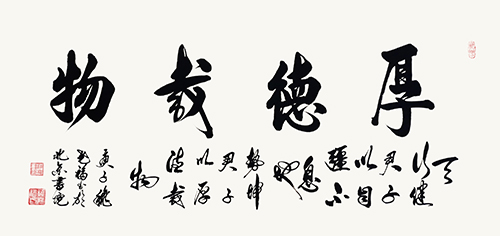 厚德載物
天
行健
君子
以自
彊不
息
地
勢坤
君子
以厚
德載
物
庚子秋
書於
北京